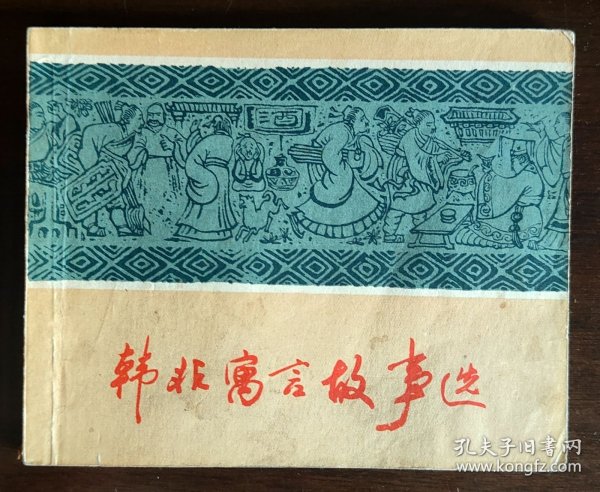 酒
韩非寓言故事选
孔夫子旧书网
www.kongfz.com